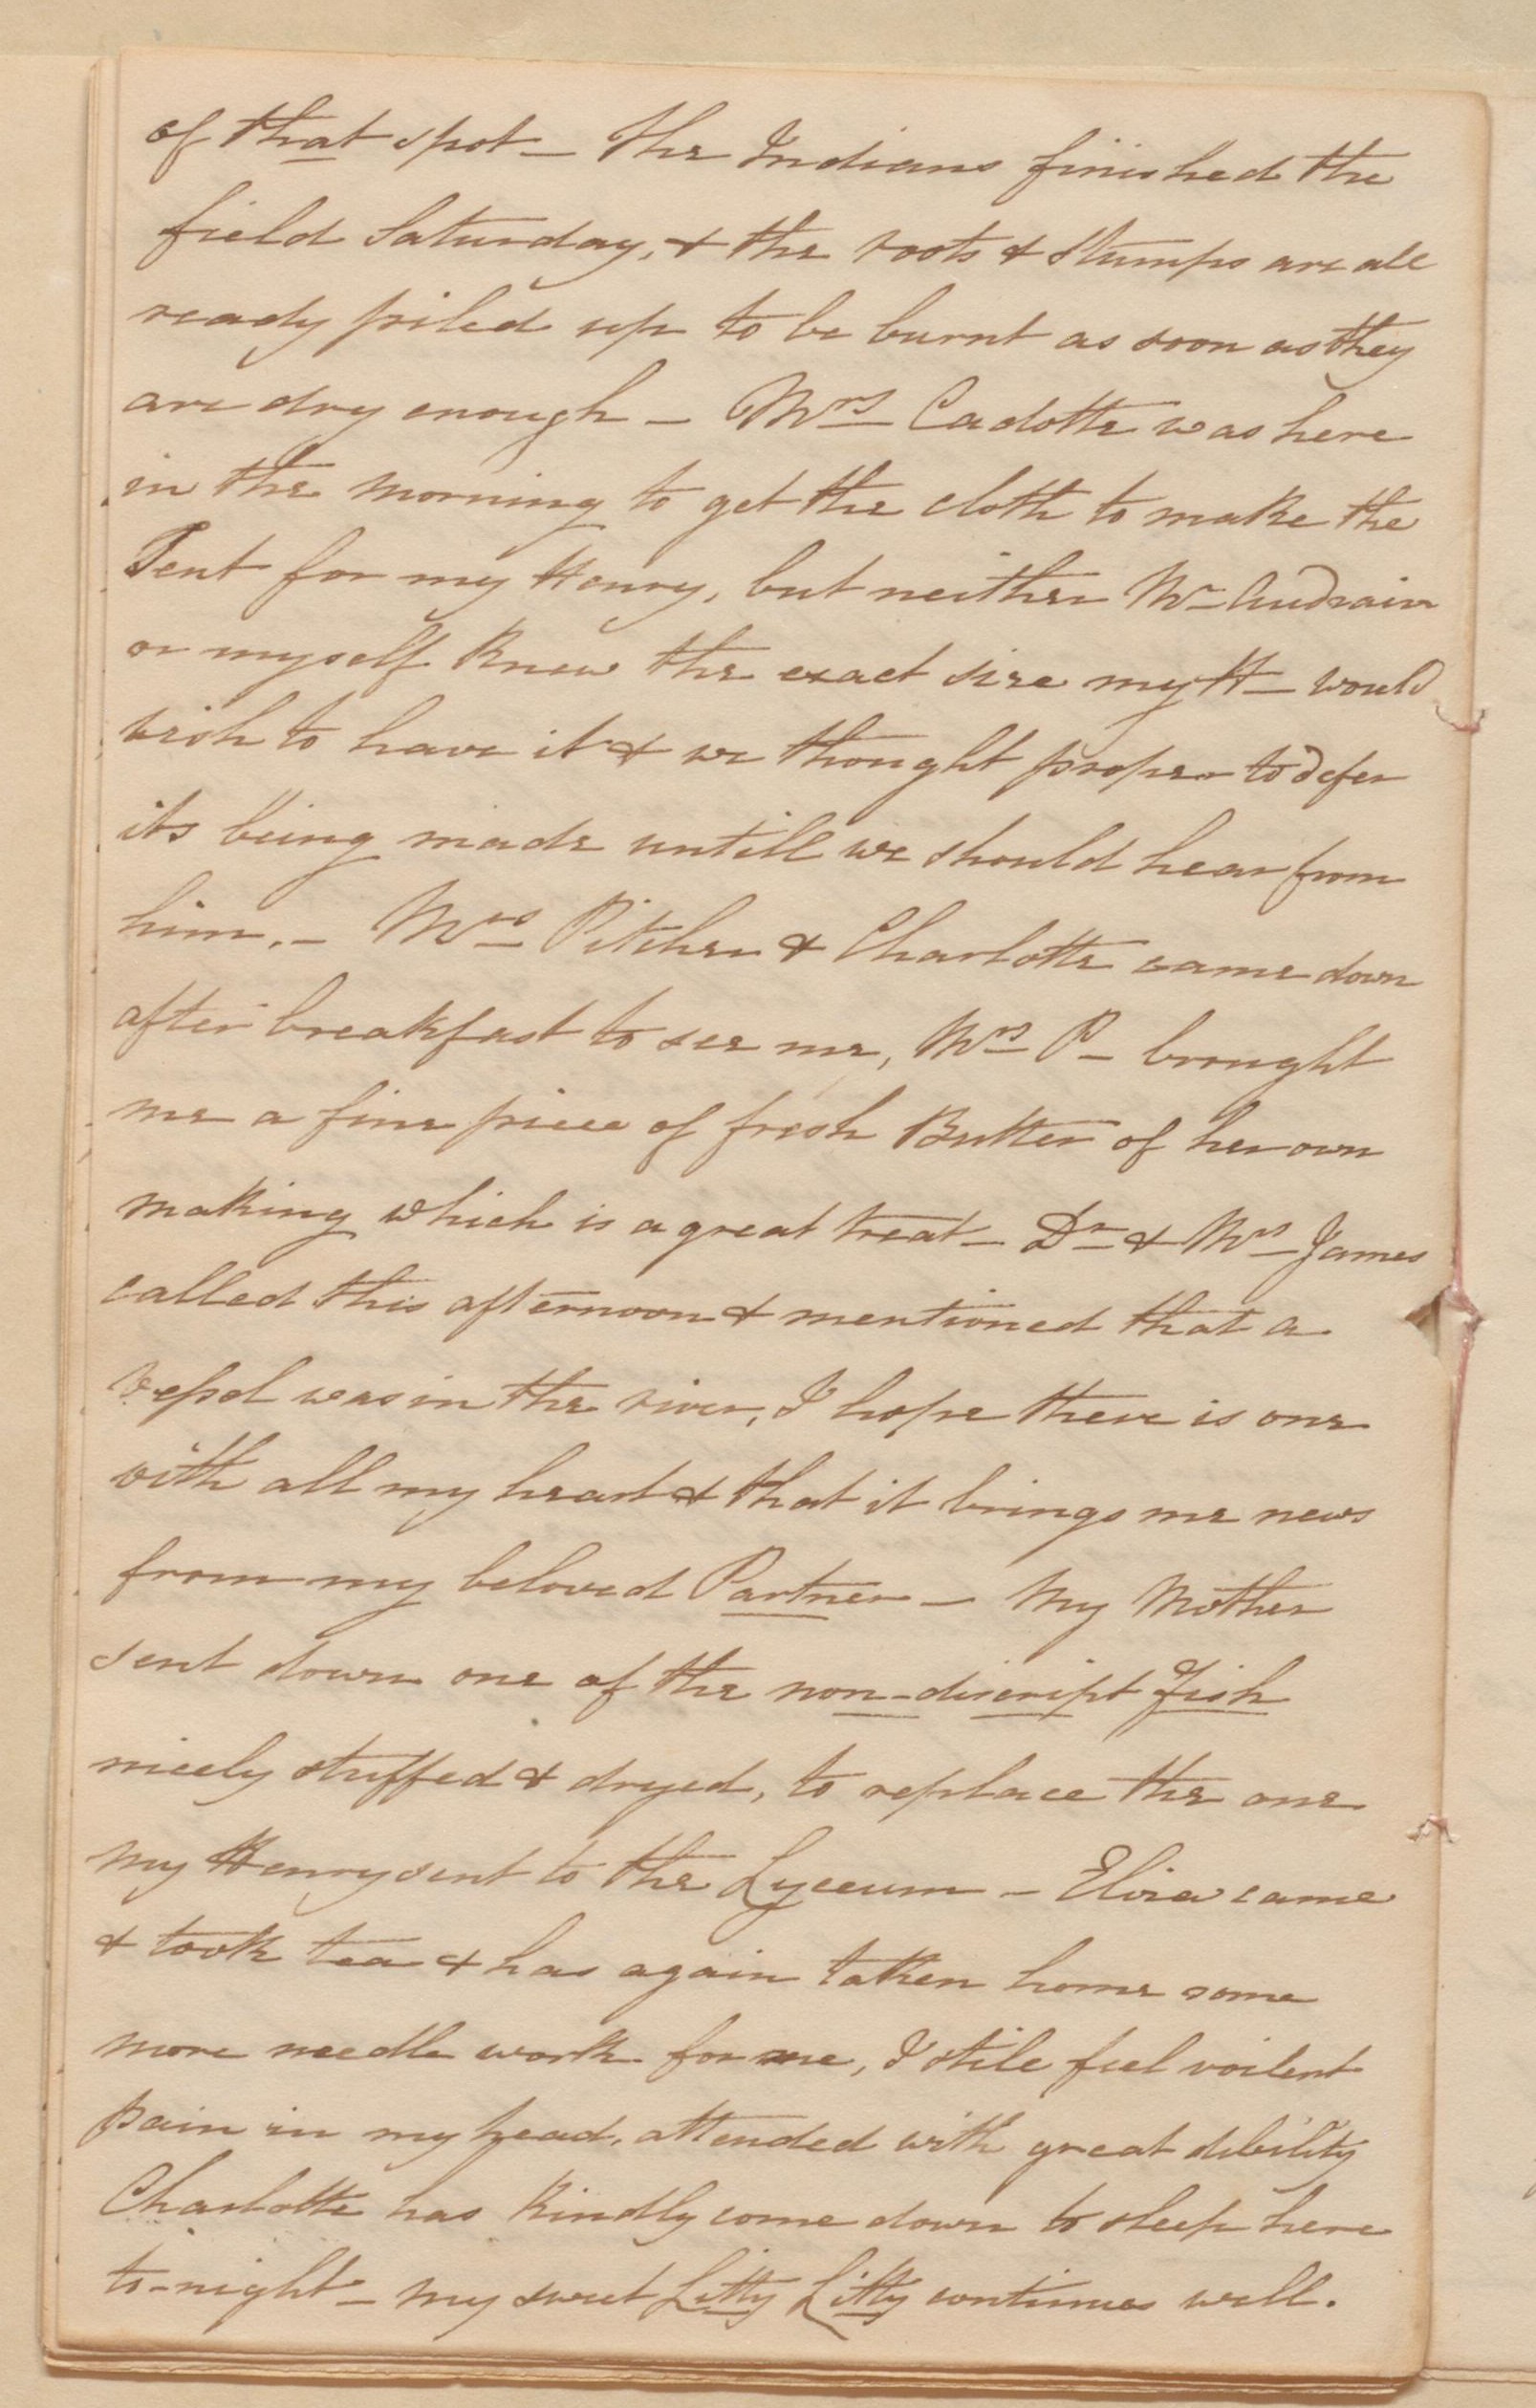 of that spot — The Indians finished the
field Saturday, & the roots & stumps are all
ready piled up to be burnt as soon as they
are dry enough — Mrs Cadotte was here
in the morning to get the cloth to make the
Tent for my Henry, but neither Mr Audrain
or myself knew the exact size my H— would
wish to have it & we thought proper to defer
its being made untill we should hear from
him. — Mrs Pitcher & Charlotte came down
after breakfast to see me, Mrs P— brought
me a fine piece of fresh Butter of her own
making which is a great treat — Dr & Mrs James
called this afternoon & mentioned that a
vessel was in the river, I hope there is one
with all my heart & that it brings me news
from my beloved Partner — My Mother
sent down one of the non-discript Fish
nicely stuffed & dryed, to replace the one
my Henry sent to the Lyceum — Eliza came
& took tea & has again taken home some
more needle work for me, I stile feel voilent
pain in my head, attended with great dibility
Charlotte has kindly come down to sleep here
to-night — my sweet Litty Litty continues well.